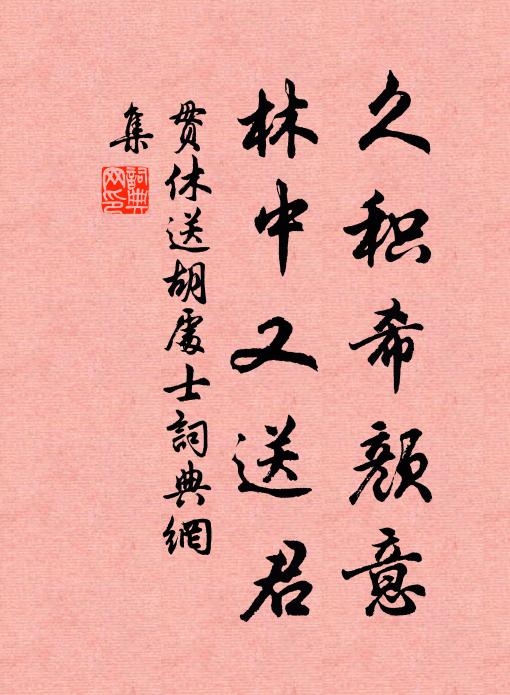 久积希颜意
林中又送君
贯休送胡處士詞典網
集
詞典
网印